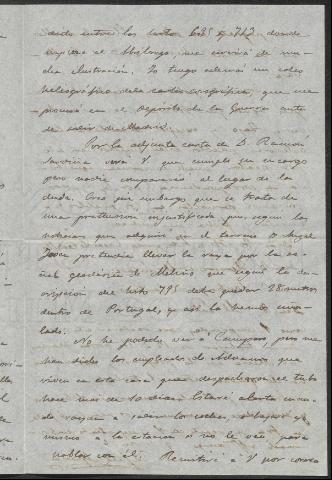 dido entre los hitos 685 y 712 donde
empieza el Abilongo me servirá de mu-
cha ilustración. Yo tengo además un calco
heliográfico de la carta corográfica, que me
procuré en el Depósito de la Guerra antes
de salir de Madrid.
Por la adjunta carta de D. Ramón
verá V. que cumplí su encargo
pero nadie compareció al lugar de la
duda. Creo sin embargo que se trata de
una pretensión injustificada pues, según las
noticias que adquirí en el terreno D. Angel
pretendía llevar la raya por la se-
ñal geodésica de que según la des-
cripción del hito 795 debe quedar 28 metros
dentro de Portugal, y así la hemos seña-
lado.
No he podido ver a Campos, pero me
han dicho los empleados de Aduanas que
viven en esta casa que
hace más de 10 días. Estaré alerta cuan-
do vayan a salir los coches, o bajaré yo
mismo a la estación si no le veo para
hablar con él. Remitiré a V. por correo